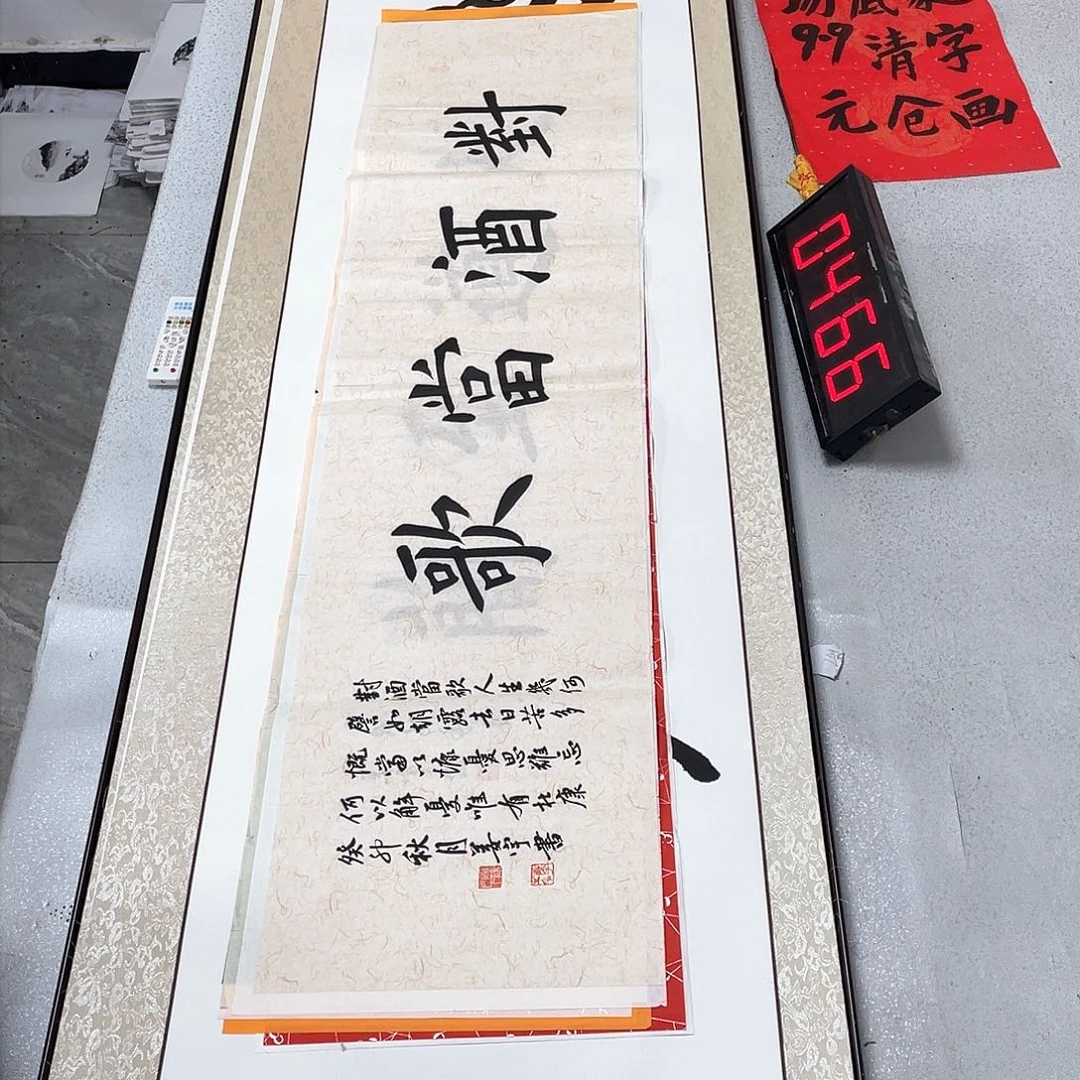 對酒當歌
對酒當歌人生幾何
譬如朝露去日苦多
慨當以慷憂思難忘
何以解憂唯有杜康
癸卯秋月姜宇書
家字画
底清仓
场9.9元
0466